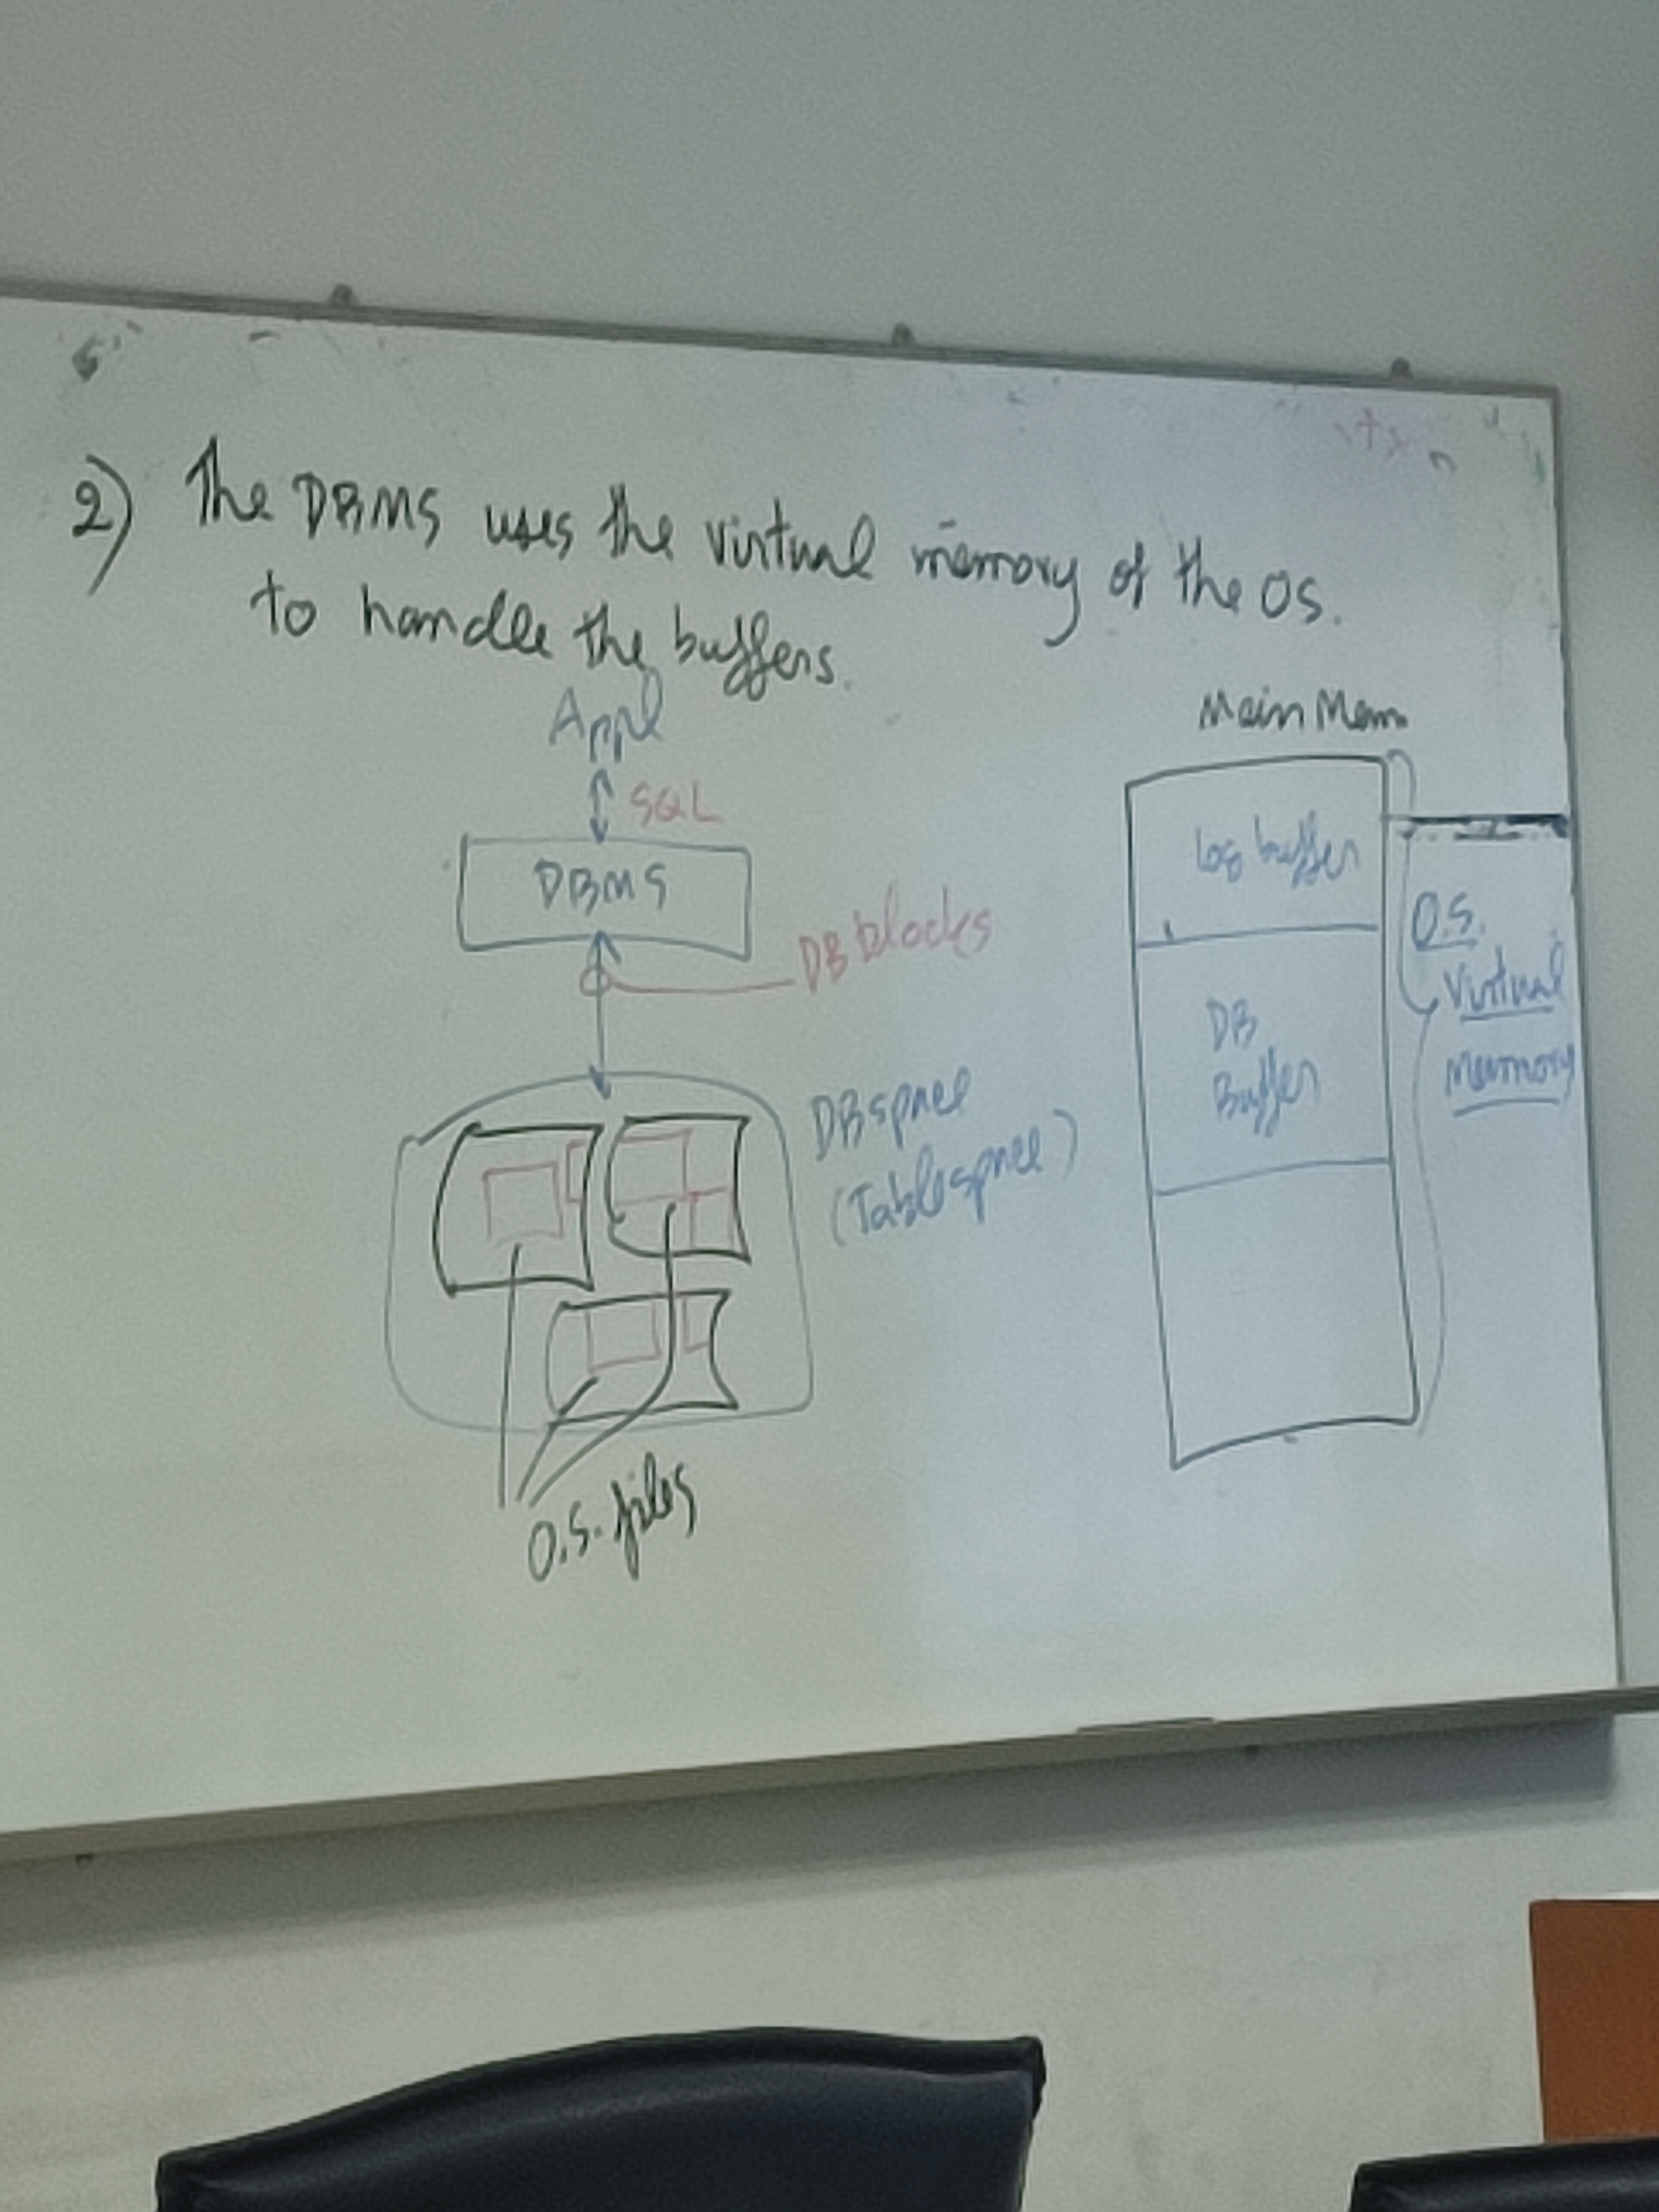 2) The DBMS uses the virtual memory of the OS.
to handle the buffers.
Appl
SQL
DBMS
DB blocks
DBspace
(Tablespace)
O.S. files
Main Mem
Log buffer
DB
Buffer
O.S.
Virtual
Memory